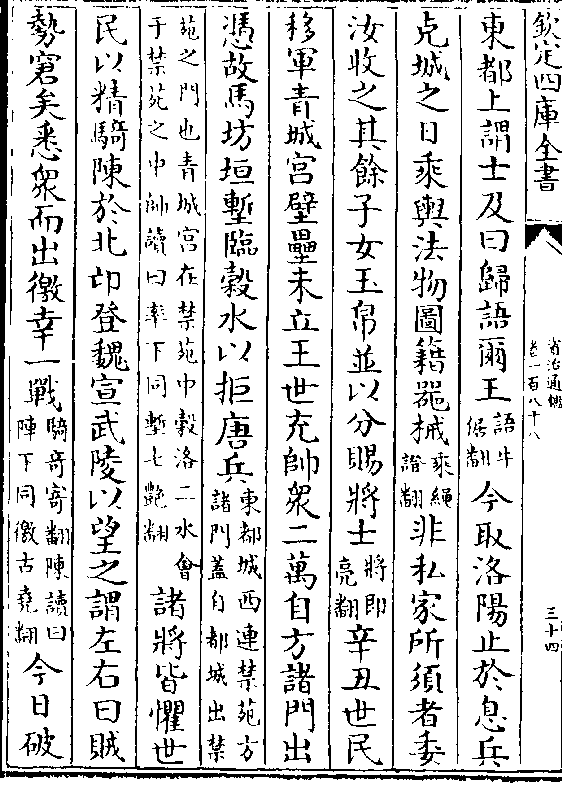 欽定四庫全書
資治通鑑
卷一百八十八
三十四
東都上謂士及曰歸語爾王語牛倨翻今取洛陽止於息兵
克城之日乘輿法物圖籍器械乘繩證翻非私家所須者委
汝收之其餘子女玉帛並以分賜將士將即亮翻辛丑世民
移軍青城宫壁壘未立王世充帥衆二萬自方諸門出
憑故馬坊垣塹臨穀水以拒唐兵東都城西連禁苑方諸門蓋自都城出禁
苑之門也青城宫在禁苑中穀洛二水會于禁苑之中帥讀曰率下同塹七艶翻諸將皆懼世
民以精騎陳於北邙登魏宣武陵以望之謂左右曰賊
勢窘矣悉衆而出徼幸一戰騎奇寄翻陳讀曰陣下同徼古堯翻今日破